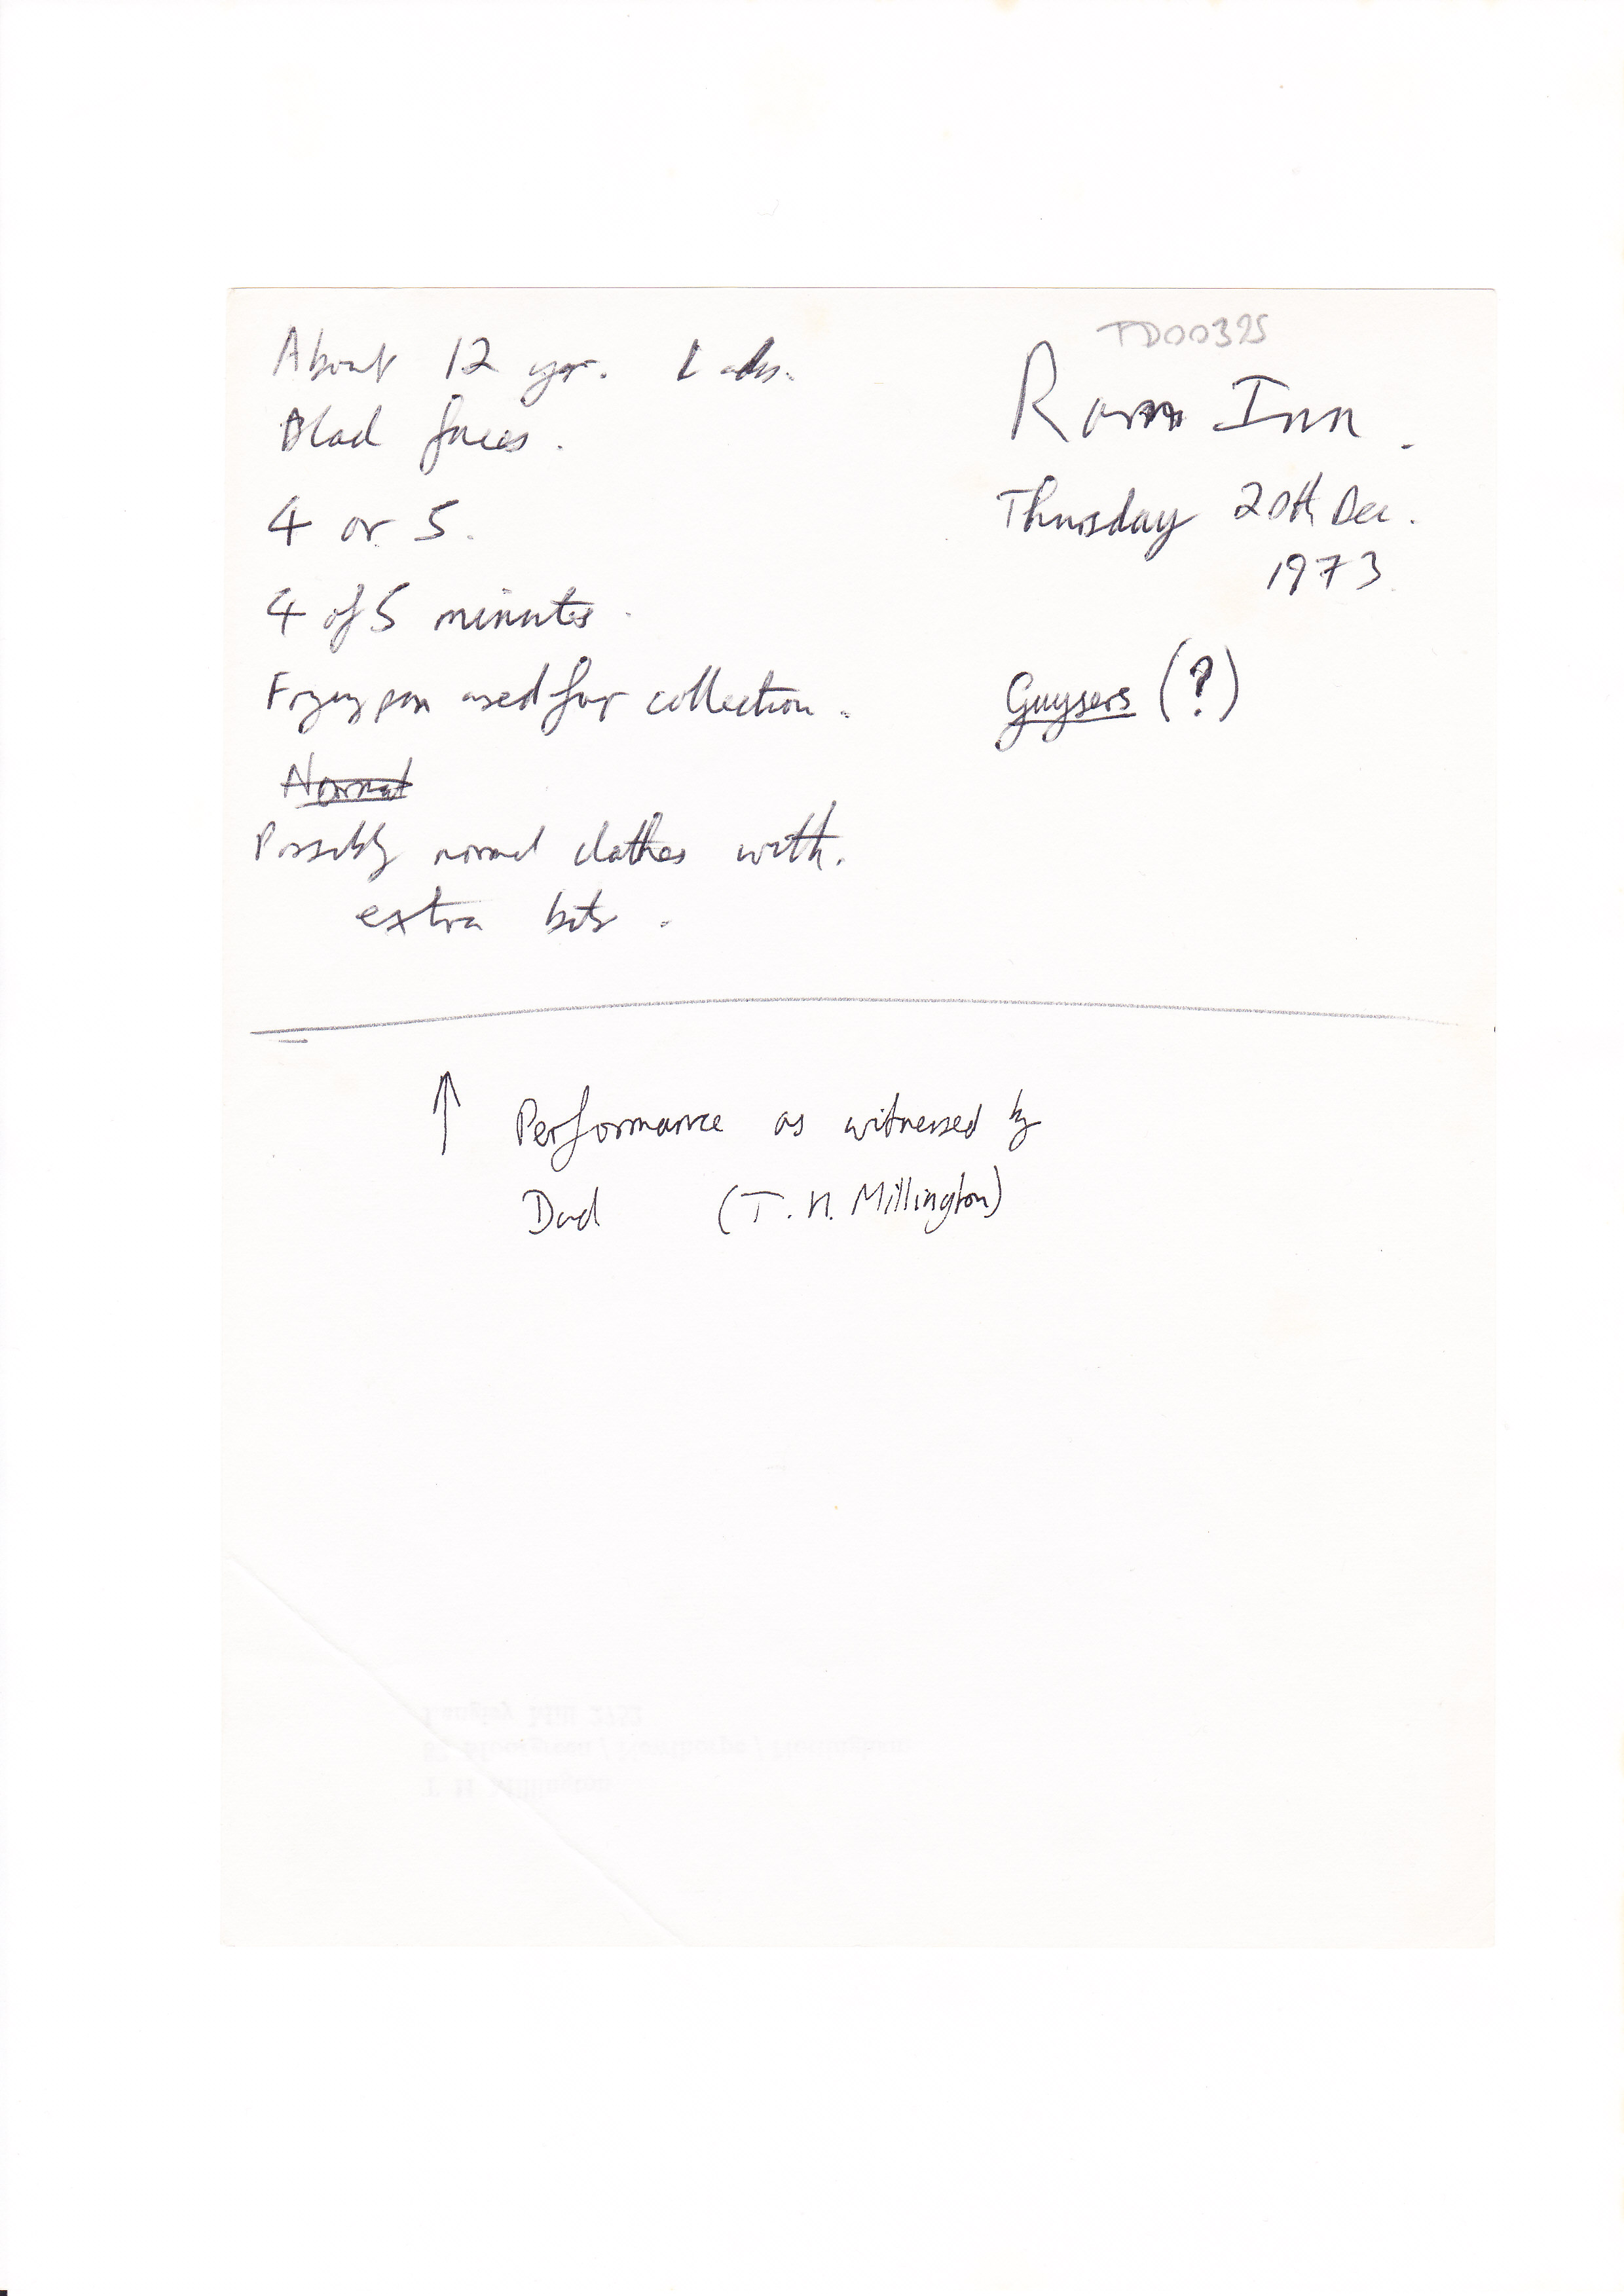 TD00325
About 12 yr. Lads.
Blad faces.
4 or 5.
4 of 5 minutes.
Frying pan used for collection.
Normal
Possibly normal clothes with.
extra bits.
Ram Inn.
Thursday 20th Dec.
1973.
Guysers (?)
↑ Performance as witnessed by
Dad (T. H. Millington)